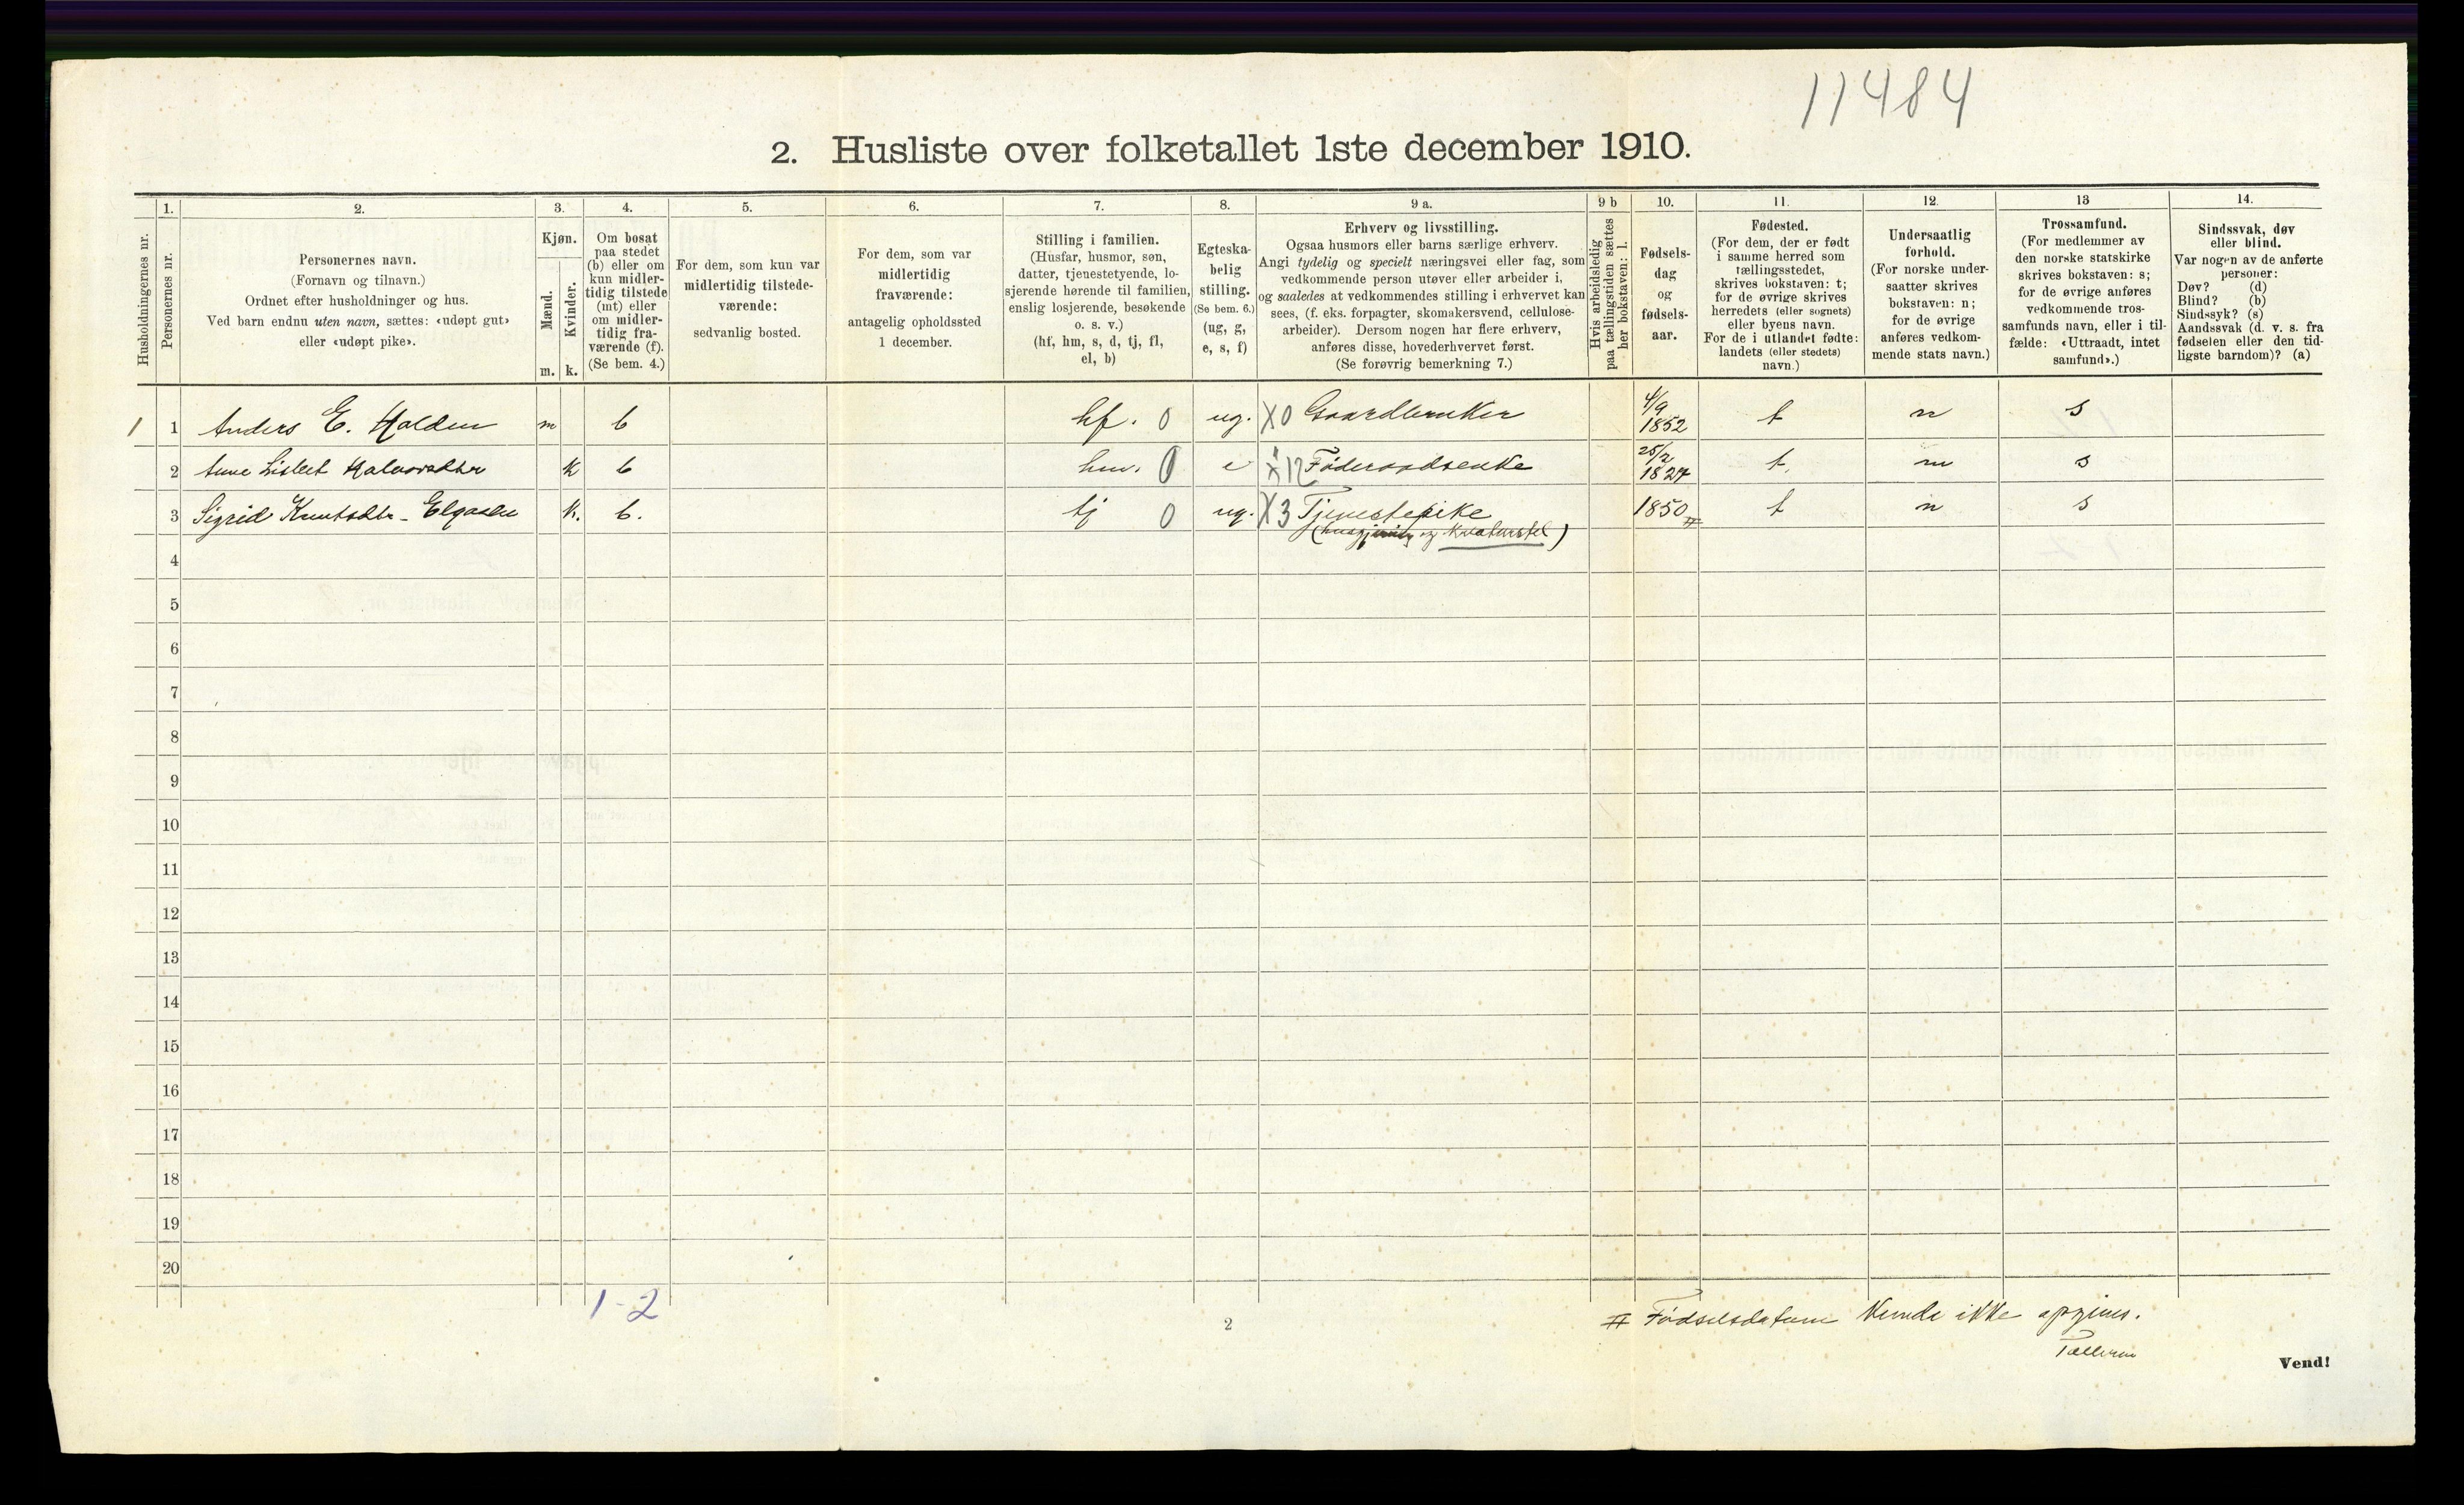 11484
2. Husliste over folketallet 1ste december 1910.
Husholdningernes nr.
1.
Personernes nr.
2.
Personernes navn.
(Fornavn og tilnavn.)
Ordnet efter husholdninger og hus.
Ved barn endnu uten navn, sættes: «udøpt gut»
eller «udøpt pike».
3.
Kjøn.
Mænd.
Kvinder.
m. k.
4.
Om bosat
paa stedet
(b) eller om
kun midler-
tidig tilstede
(mt) eller
om midler-
tidig fra-
værende (f).
(Se bem. 4.)
5.
For dem, som kun var
midlertidig tilstede-
værende:
sedvanlig bosted.
6.
For dem, som var
midlertidig
fraværende:
antagelig opholdssted
1 december.
7.
Stilling i familien.
(Husfar, husmor, søn,
datter, tjenestetyende, lo-
sjerende hørende til familien,
enslig losjerende, besøkende
o. s. v.)
(hf, hm, s, d, tj, fl,
el, b)
8.
Egteska-
belig
stilling.
(Se bem. 6.)
(ug, g,
e, s, f)
9 a.
Erhverv og livsstilling.
Ogsaa husmors eller barns særlige erhverv.
Angi tydelig og specielt næringsvei eller fag, som
vedkommende person utøver eller arbeider i,
og saaledes at vedkommendes stilling i erhvervet kan
sees, (f. eks. forpagter, skomakersvend, cellulose-
arbeider). Dersom nogen har flere erhverv,
anføres disse, hovederhvervet først.
(Se forøvrig bemerkning 7.)
9 b
Hvis arbeidsledig
paa tællingstiden sættes
her bokstaven: l.
10.
Fødsels-
dag
og
fødsels-
aar.
11.
Fødested.
(For dem, der er født
i samme herred som
tællingsstedet,
skrives bokstaven: t;
for de øvrige skrives
herredets (eller sognets)
eller byens navn.
For de i utlandet fødte:
landets (eller stedets)
navn.)
12.
Undersaatlig
forhold.
(For norske under-
saatter skrives
bokstaven: n;
for de øvrige
anføres vedkom-
mende stats navn.)
13
Trossamfund.
(For medlemmer av
den norske statskirke
skrives bokstaven: s;
for de øvrige anføres
vedkommende tros-
samfunds navn, eller i til-
fælde: «Uttraadt, intet
samfund».)
14.
Sindssvak, døv
eller blind.
Var nogen av de anførte
personer:
Døv? (d)
Blind? (b)
Sindssyk? (s)
Aandssvak (d. v. s. fra
fødselen eller den tid-
ligste barndom)? (a)
1 1 Anders E. Holden m b hf. 0 ug. X0 Gaardbruker 4/9 1852 t n s
2 Anne Lisbet Halvorsdtr k b hm. 0 e X12 Føderaadsenke 25/2 1827 t. n s
3 Sigrid Knutsdtr - Elgaaen k. b. tj 0 ug. X3 Tjenestepike 1850 # t n s
(husgjerning og kreaturstel)
4
5
6
7
8
9
10
11
12
13
14
15
16
17
18
19
20
1 - 2
2
# Fødselsdatum kunde ikke opgives.
Tælleren
Vend!